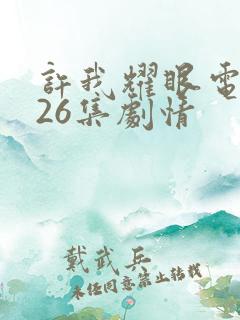 許我耀眼電
26集劇情
戴武兵
未经同意禁止转载